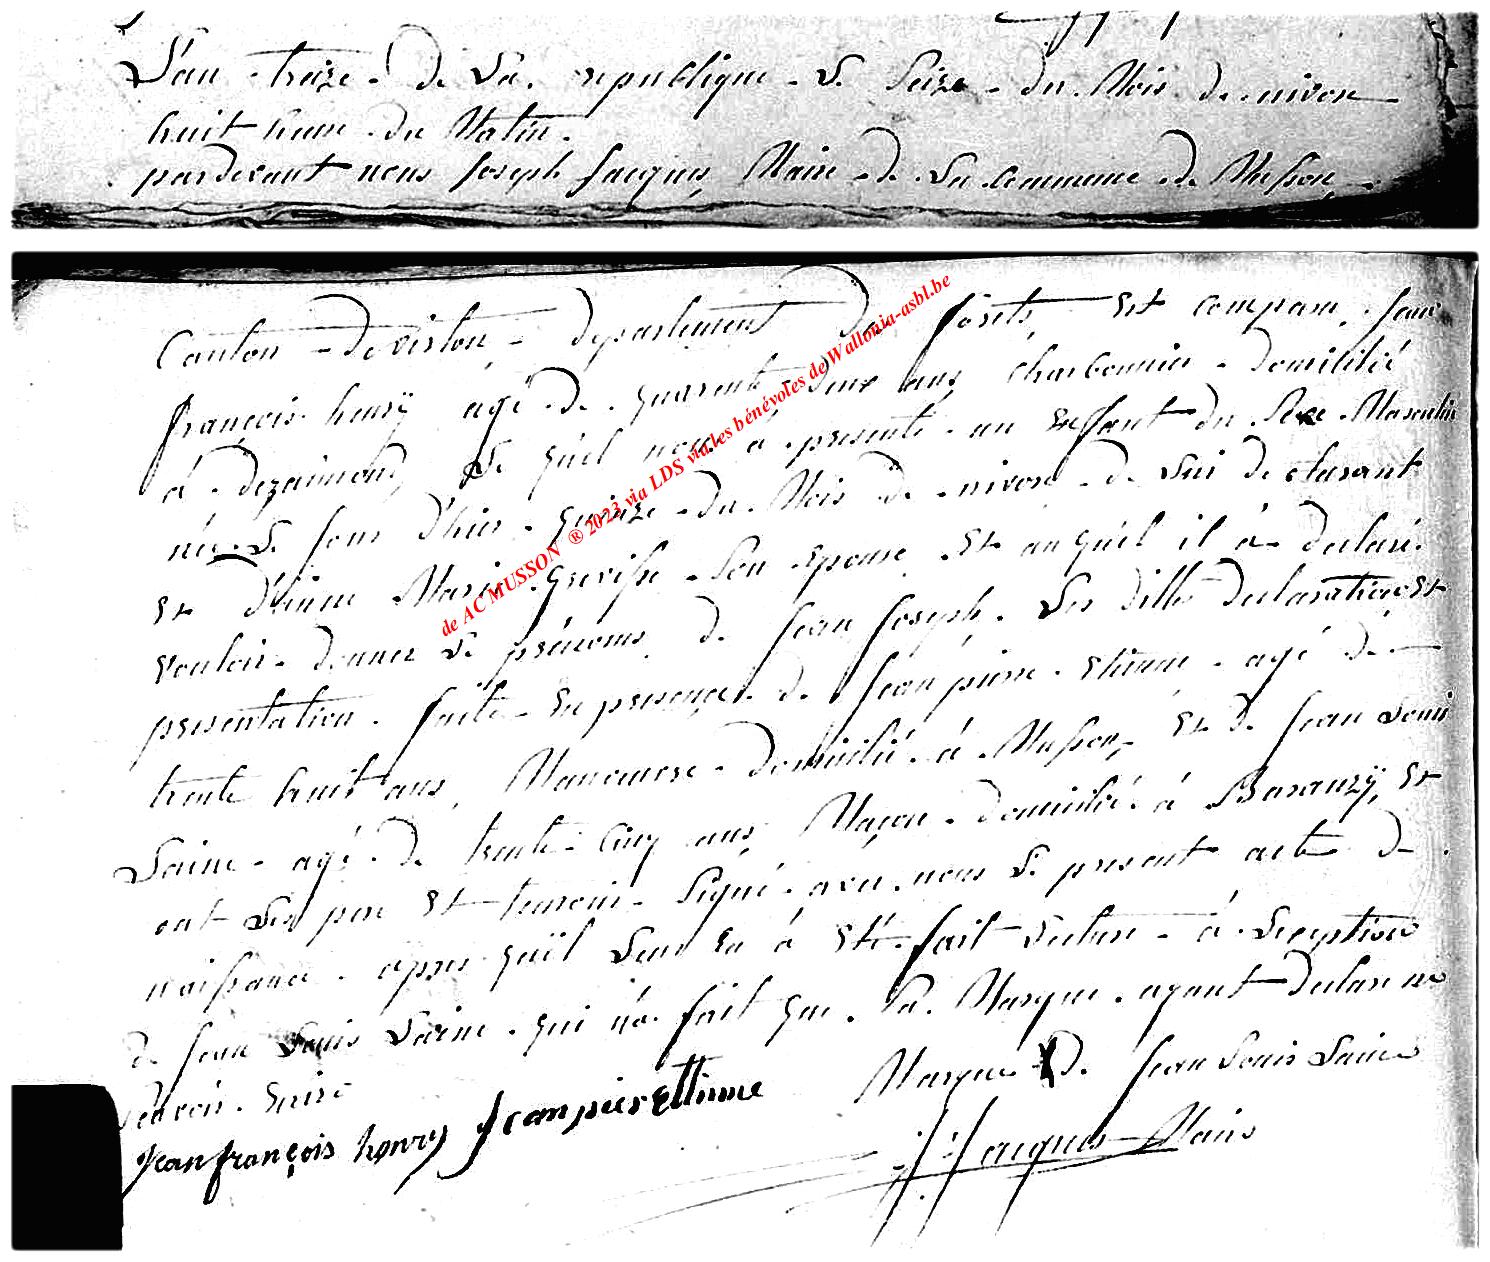 L'an treize de La republique Le Seize du Mois de nivose
huit heure du Matin.
pardevant nous Joseph Jacques Maire de La Commune de Musson
Canton de virton departement de forêts Est comparu Jean
françois henrÿ agé de quarente deux ans Charbonnier domicilié
à Le quel nous à presenté un Enfant du Sexe Masculin
née Le Jour d'hier quinze du Mois de nivose de Lui declarant
Et d'anne Marie grevisse Son Epouse Et auquel il à declaré
vouloir donner Le prénoms de Jean Joseph. Les dittes declaration Et
presentation faite En presence de Jean pierre Etienne agé de
trente huit ans Manœuvre domicilié à Musson, Et de Jean Louis
Laine agé de trente Cinq ans Maçon domicilié à Baranzÿ, Et
ont Les pere Et temoin Signé avec nous Le present acte de
naissance apres quil Leur En à Eté fait Lecture à L'exeption
de Jean Louis Laine qui n'a fait que Sa Marque ayant declaré ne
Scavoir Ecrire
Marque de Jean Louis Laine
jean françois henry Jean pier Ettienne
J: Jacques Maire
de AC MUSSON ® 2023 via LDS via les bénévoles de Wallonia-asbl.be